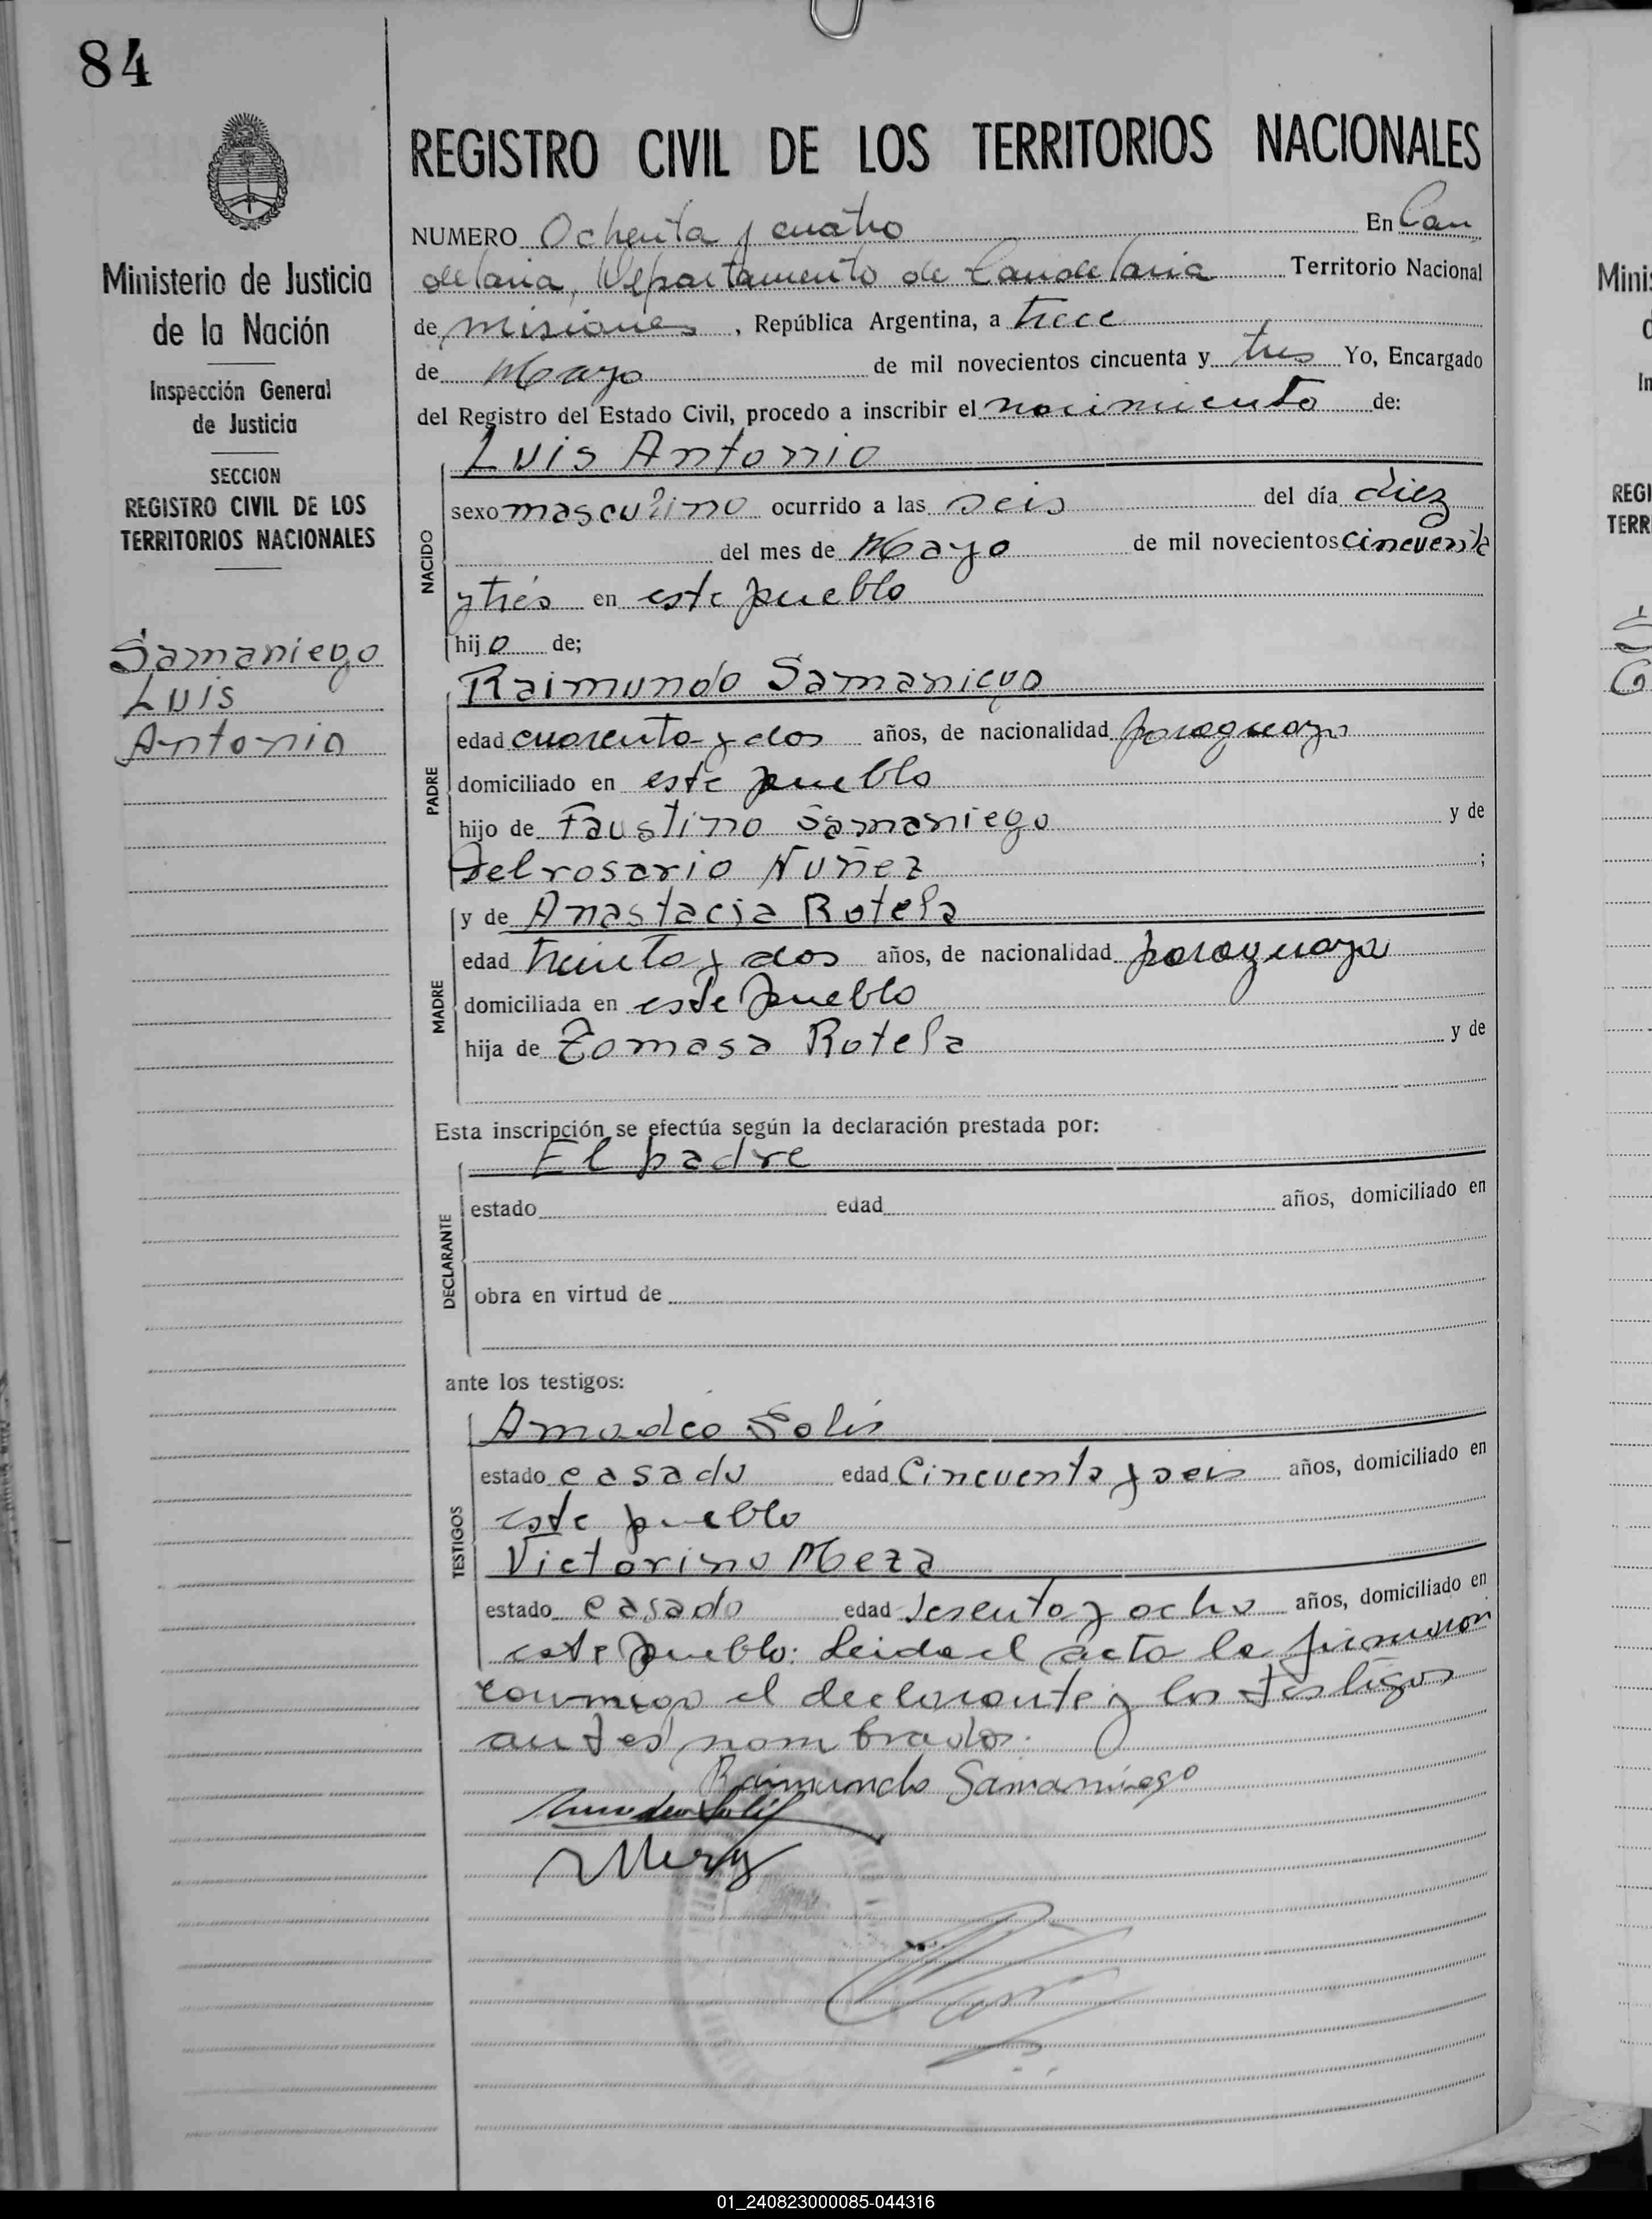 84
Ministerio de Justicia
de la Nación
Inspección General
de Justicia
SECCION
REGISTRO CIVIL DE LOS
TERRITORIOS NACIONALES
Samaniego
Luis
Antonio
REGISTRO CIVIL DE LOS TERRITORIOS NACIONALES
NUMERO Ochenta y cuatro En Can
delaria, Departamento de Candelaria Territorio Nacional
de misiones, República Argentina, a trece
de Mayo de mil novecientos cincuenta y tres Yo, Encargado
del Registro del Estado Civil, procedo a inscribir el nacimiento de:
NACIDO
Luis Antonio
sexo masculino ocurrido a las seis del día diez
del mes de Mayo de mil novecientos cincuenta
y tres en este pueblo
hijo de;
PADRE
Raimundo Samaniego
edad cuarenta y dos años, de nacionalidad paraguayo
domiciliado en este pueblo
hijo de Faustino Samaniego y de
Delrosario Nuñez ;
MADRE
y de Anastacia Rotela
edad treinta y dos años, de nacionalidad paraguaya
domiciliada en este pueblo
hija de Tomasa Rotela y de
Esta inscripción se efectúa según la declaración prestada por:
DECLARANTE
El padre
estado edad años, domiciliado en
obra en virtud de
ante los testigos:
TESTIGOS
Amadeo Solis
estado casado edad Cincuenta y seis años, domiciliado en
este pueblo
Victorino Meza
estado casado edad sesenta y ocho años, domiciliado en
este pueblo: Leida el acta la firmaron
conmigo el declarante y los testigos
antes nombrados.
Raimundo Samaniego
Amadeo Solis
VMeza
Minis
REGI
TERR
01_240823000085-044316